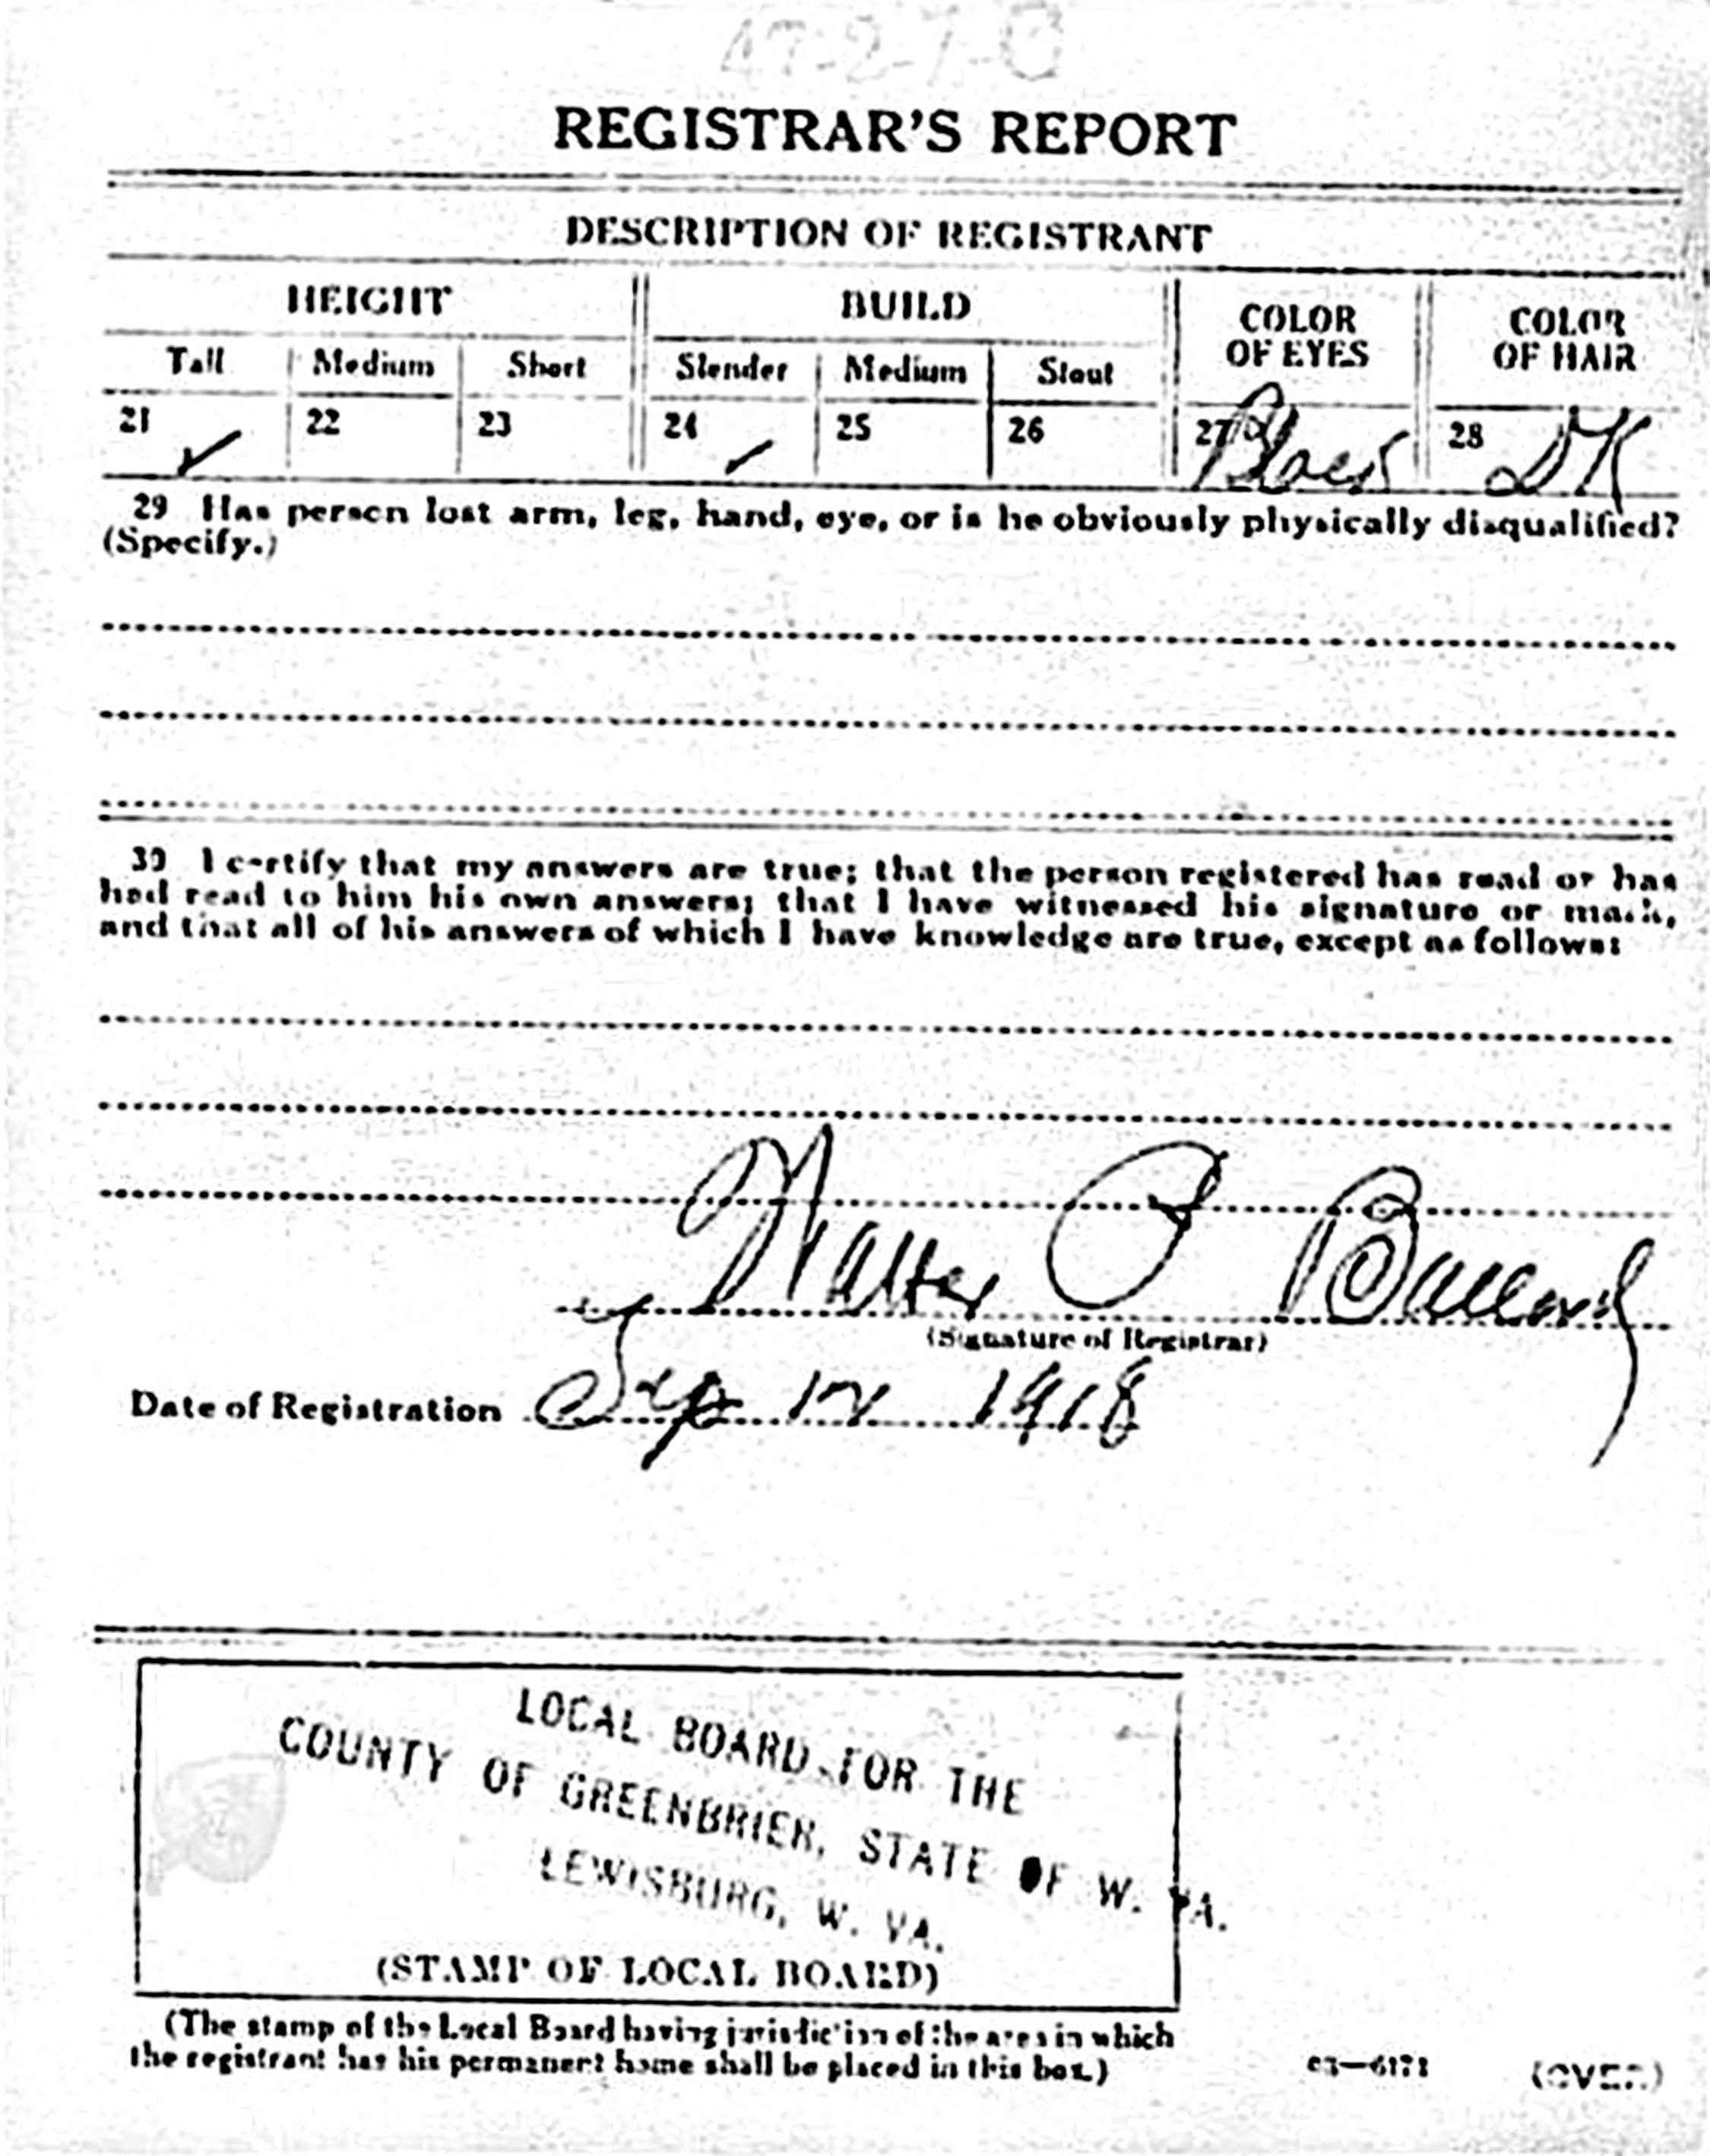 47-2-7-C
REGISTRAR'S REPORT
DESCRIPTION OF REGISTRANT
HEIGHT BUILD COLOR OF EYES COLOR OF HAIR
Tall Medium Short Slender Medium Stout
21 ✓ 22 23 24 ✓ 25 26 27 Black 28 DK
29 Has person lost arm, leg, hand, eye, or is he obviously physically disqualified?
(Specify.)
30 I certify that my answers are true; that the person registered has read or has
had read to him his own answers; that I have witnessed his signature or mark,
and that all of his answers of which I have knowledge are true, except as follows:
Walter P Ballard
(Signature of Registrar)
Date of Registration Sep 12 1918
LOCAL BOARD FOR THE
COUNTY OF GREENBRIER, STATE OF W. VA.
LEWISBURG, W. VA.
(STAMP OF LOCAL BOARD)
(The stamp of the Local Board having jurisdiction of the area in which
the registrant has his permanent home shall be placed in this box.)
03—6171 (OVER)